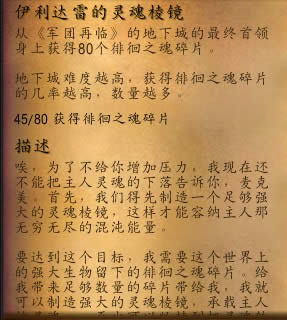 伊利达雷的灵魂棱镜
从《军团再临》的地下城的最终首领
身上获得80个徘徊之魂碎片。
地下城难度越高，获得徘徊之魂碎片
的几率越高，数量越多。
45/80 获得徘徊之魂碎片
描述
唉，为了不给你增加压力，我现在还
不能把主人灵魂的下落告诉你，麦克
美。首先，我们得先制造一个足够强
大的灵魂棱镜，这样才能容纳主人那
无穷无尽的混沌能量。
要达到这个目标，我需要这个世界上
的强大生物留下的徘徊之魂碎片。给
我带来足够数量的碎片带给我，我就
可以制造强大的灵魂棱镜，承载主人